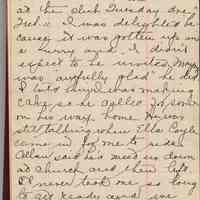 at the Club Tuesday
I was delighted be
cause it was gotten up in
a hurry and I didn't
expect to be invited. Mary
was awfully glad he did
I was making
cake so he called for some
on his way home. He was
still talking when Ella Coyle
came in for me to
Allan said he'd meet us down
at church and then left.
I never took me so long
to get ready and we